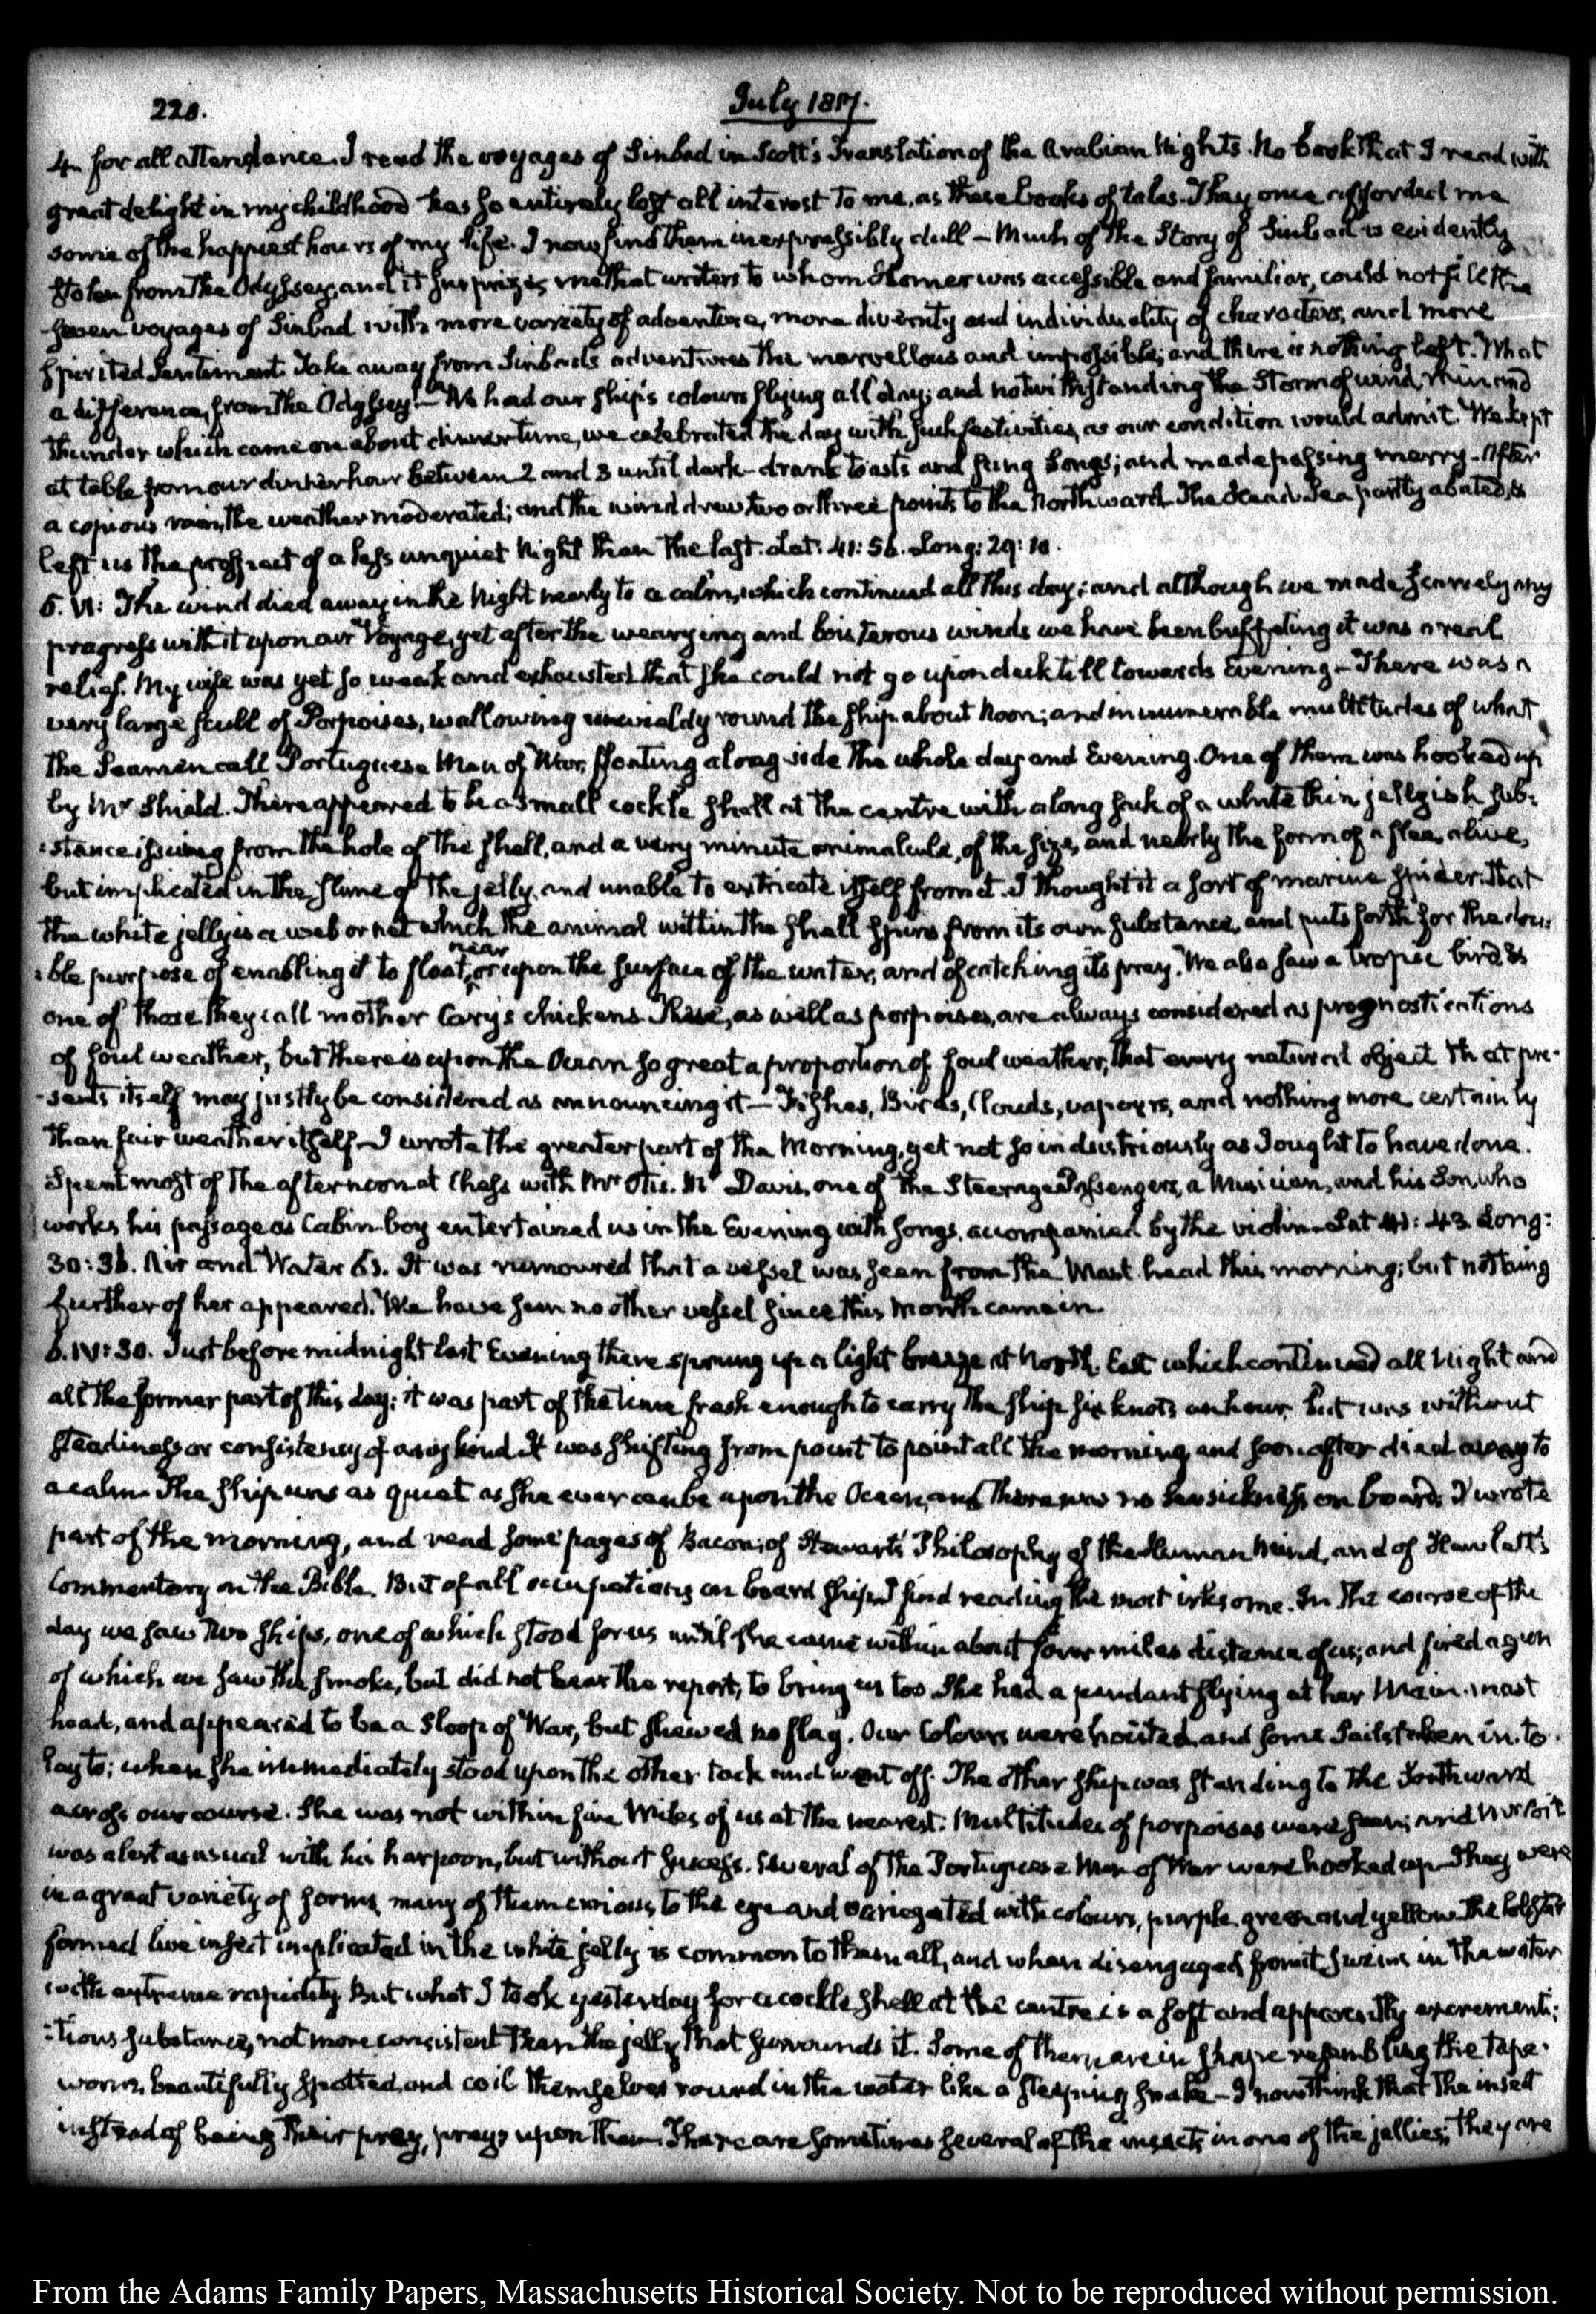 220.
July 1817.
4 for all attendance. I read the voyages of Sinbad in Scott's Translation of the Arabian Nights. No book that I read with
great delight in my childhood has so entirely lost all interest to me, as these books of tales. They once afforded me
some of the happiest hours of my life. I now find them inexpressibly dull — Much of the Story of Sinbad is evidently
stolen from the Odyssey, and it surprizes me that writers to whom Homer was accessible and familiar, could not fill the
seven voyages of Sinbad with more variety of adventure, more diversity and individuality of characters, and more
spirited Sentiment. Take away from Sinbad's adventures the marvellous and impossible; and there is nothing left. What
a difference, from the Odyssey! — We had our ship's colours flying all day; and notwithstanding the Storm of wind, rain and
thunder which came on about dinner time, we celebrated the day with such festivities, as our condition would admit. We kept
at table from our dinner hour between 2 and 3 until dark — drank toasts and sung Songs; and made passing merry — After
a copious rain, the weather moderated; and the wind drew two or three points to the Northward. The Head-Sea partly abated, &
left us the prospect of a less unquiet Night than the last. Lat: 41:56. Long: 29:10.
5. VI: The wind died away in the Night nearly to a calm, which continued all this day; and although we made scarcely any
progress with it upon our Voyage, yet after the wearying and boisterous winds we have been buffeting it was a real
relief. My wife was yet so weak and exhausted that she could not go upon deck till towards Evening — There was a
very large scull of Porpoises, wallowing unwieldy round the ship about Noon; and innumerable multitudes of what
the Seamen call Portuguese Men of War, floating along side the whole day and Evening. One of them was hooked up
by Mr Shield. There appeared to be a small cockle shell at the centre with a long sack of a white thin jellyish sub:
:stance issuing from the hole of the shell, and a very minute animalcule, of the size, and nearly the form of a flea, alive,
but implicated in the slime of the jelly, and unable to extricate itself from it. I thought it a sort of marine spider. That
the white jelly is a web or net which the animal within the shell spins from its own substance, and puts forth for the dou:
:ble purpose of enabling it to float, near or upon the surface of the water, and of catching its prey. We also saw a tropic bird &
one of those they call mother Cary's chickens. These, as well as porpoises, are always considered as prognostications
of foul weather, but there is upon the Ocean so great a proportion of foul weather, that every natural object that pre-
-sents itself may justly be considered as announcing it — Fishes, Birds, Clouds, vapours, and nothing more certainly
than fair weather itself — I wrote the greater part of the Morning, yet not so industriously as I ought to have done.
Spent most of the afternoon at Chess with Mr Otis. Mr Davis, one of the Steerage Passengers, a Musician, and his Son, who
works his passage as Cabin-boy entertained us in the Evening with songs, accompanied by the violin. Lat 41:43. Long:
30:36. Air and Water 65. It was rumoured that a vessel was seen from the Mast head this morning; but nothing
further of her appeared. We have seen no other vessel since this Month came in.
6. IV:30. Just before midnight last Evening there sprung up a light breeze at North East which continued all Night and
all the former part of this day: it was part of the time fresh enough to carry the ship six knots an hour, but was without
steadiness or consistency of any kind. It was shifting from point to point all the morning, and soon after died away to
a calm. The ship was as quiet as she ever can be upon the Ocean, and there was no sea sickness on board. I wrote
part of the morning, and read some pages of Bacon, of Stewart's Philosophy of the Human Mind, and of Hewlett's
Commentary on the Bible. But of all occupations on board ship I find reading the most irksome. In the course of the
day we saw two ships, one of which stood for us until she came within about four miles distance of us; and fired a gun
of which we saw the smoke, but did not hear the report, to bring us too. She had a pendant flying at her Main-mast
head, and appeared to be a Sloop of War, but shewed no flag. Our Colours were hoisted, and some Sails taken in, to
lay to; when she immediately stood upon the other tack and went off. The other ship was standing to the Southward
across our course. She was not within five Miles of us at the nearest. Multitudes of porpoises were seen; and Mr
was alert as usual with his harpoon, but without success. Several of the Portuguese Men of War were hooked up. They were
in a great variety of forms, many of them curious to the eye and variegated with colours, purple, green and yellow. The
formed live insect implicated in the white jelly is common to them all, and when disengaged from it swims in the water
with extreme rapidity. But what I took yesterday for a cockle shell at the centre is a soft and apparently excrementi:
:tious substance, not more consistent than the jelly that surrounds it. Some of them are in shape resembling the tape-
worm, beautifully spotted, and coil themselves round in the water like a sleeping snake — I now think that the insect
instead of being their prey, preys upon them. There are sometimes several of the insects in one of the jellies; they are
From the Adams Family Papers, Massachusetts Historical Society. Not to be reproduced without permission.